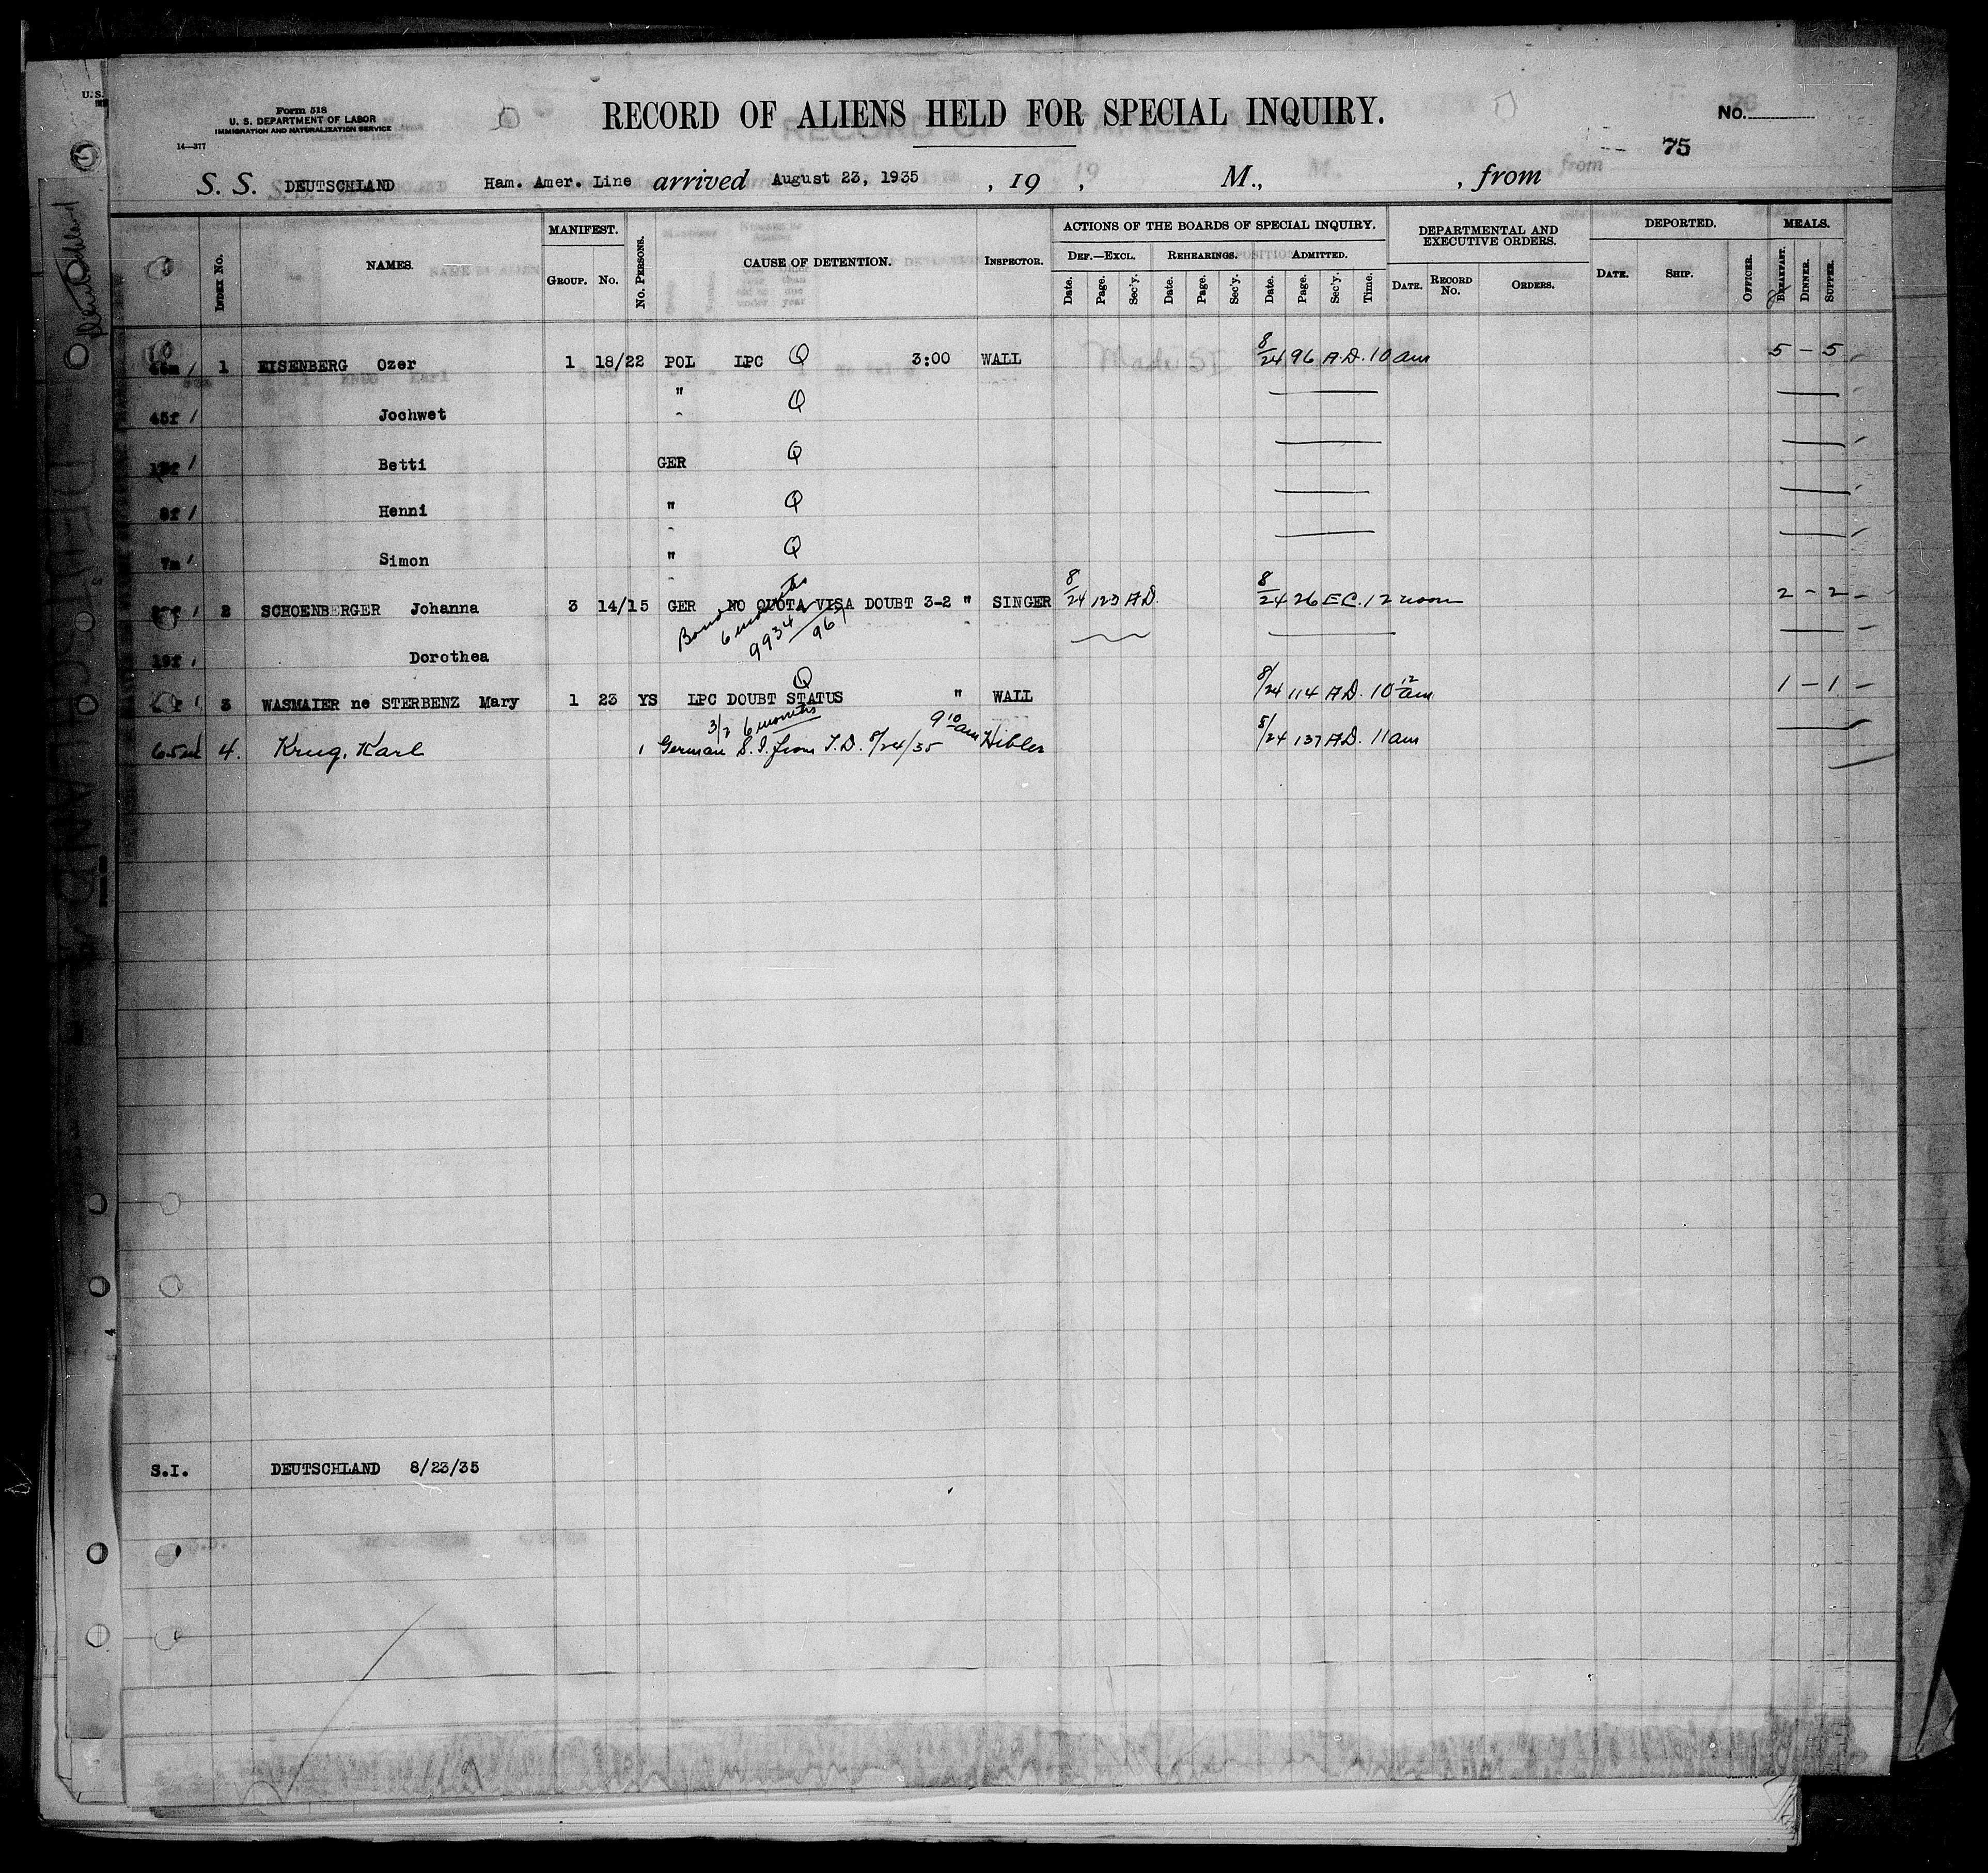 U.S.
Form 518
U. S. DEPARTMENT OF LABOR
IMMIGRATION AND NATURALIZATION SERVICE
14—377
RECORD OF ALIENS HELD FOR SPECIAL INQUIRY.
No.
75
S. S. DEUTSCHLAND Ham. Amer. Line arrived August 23, 1935 , 19 , M., , from
Deutschland
INDEX NO. NAMES. MANIFEST. GROUP. NO. NO. PERSONS. CAUSE OF DETENTION. INSPECTOR. ACTIONS OF THE BOARDS OF SPECIAL INQUIRY. DEPARTMENTAL AND EXECUTIVE ORDERS. DEPORTED. MEALS.
DEF.—EXCL. REHEARINGS. ADMITTED.
Date. Page. Sec'y. Date. Page. Sec'y. Date. Page. Sec'y. Time. DATE. RECORD NO. ORDERS. DATE. SHIP. OFFICER. BREAKFAST. DINNER. SUPPER.
1 EISENBERG Ozer 1 18/22 POL LPC Q 3:00 WALL 8/24 96 A.D. 10 am 5 – 5
45f Jochwet " Q
Betti GER Q
8f Henni " Q
7m Simon " Q
2 SCHOENBERGER Johanna 3 14/15 GER NO QUOTA VISA DOUBT 3-2 " SINGER 8/24 123 A.D. 8/24 26 E.C. 12 noon 2 – 2
Bond 6 months
9934/967
19f Dorothea
3 WASMAIER ne STERBENZ Mary 1 23 YS LPC DOUBT STATUS Q " WALL 8/24 114 A.D. 10 12 am 1 – 1
3/2 6 months
65m 4. Krug, Karl 1 German S.I. from T.D. 8/24/35 9 10 am Hibler 8/24 137 A.D. 11 am
S.I. DEUTSCHLAND 8/23/35